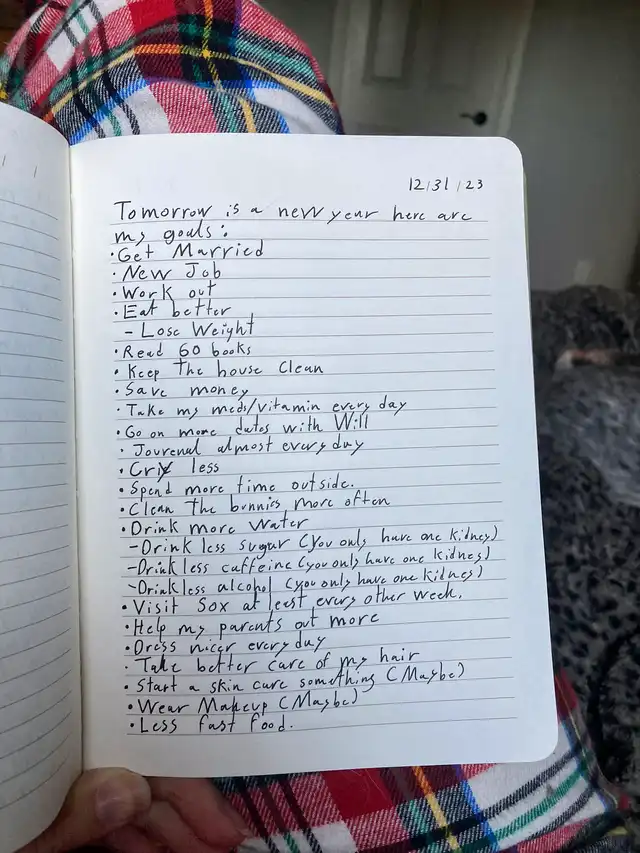 12/31/23
Tomorrow is a new year here are
my goals:
• Get Married
• New Job
• Work out
• Eat better
- Lose Weight
• Read 60 books
• Keep the house clean
• Save money
• Take my meds/vitamin every day
• Go on more dates with Will
• Jourenal almost every day
• Cry less
• Spend more time outside.
• Clean the bunnies more often
• Drink more water
- Drink less sugar (you only have one kidney)
- Drink less caffeine (you only have one kidney)
- Drink less alcohol (you only have one kidney)
• Visit Sox at least every other week.
• Help my parents out more
• Dress nicer every day
• Take better care of my hair
• Start a skin care something (Maybe)
• Wear Makeup (Maybe)
• Less fast food.